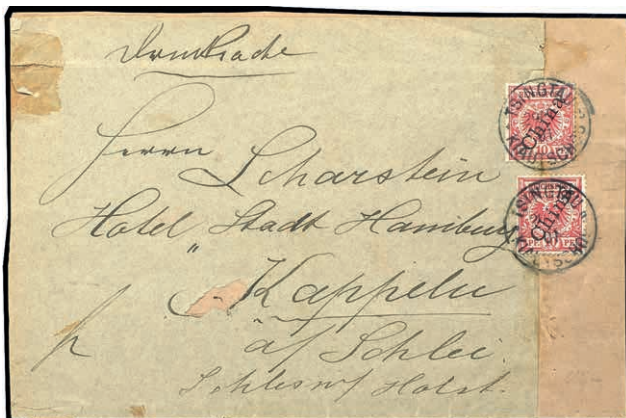 Drucksache
Herrn Scharstein
Hotel Stadt Hamburg
"
Kappeln
a/ Schlei.
Schlesw/ Holst.
TSINGTAU
China
10
TSINGTAU
China
PF 10 PF